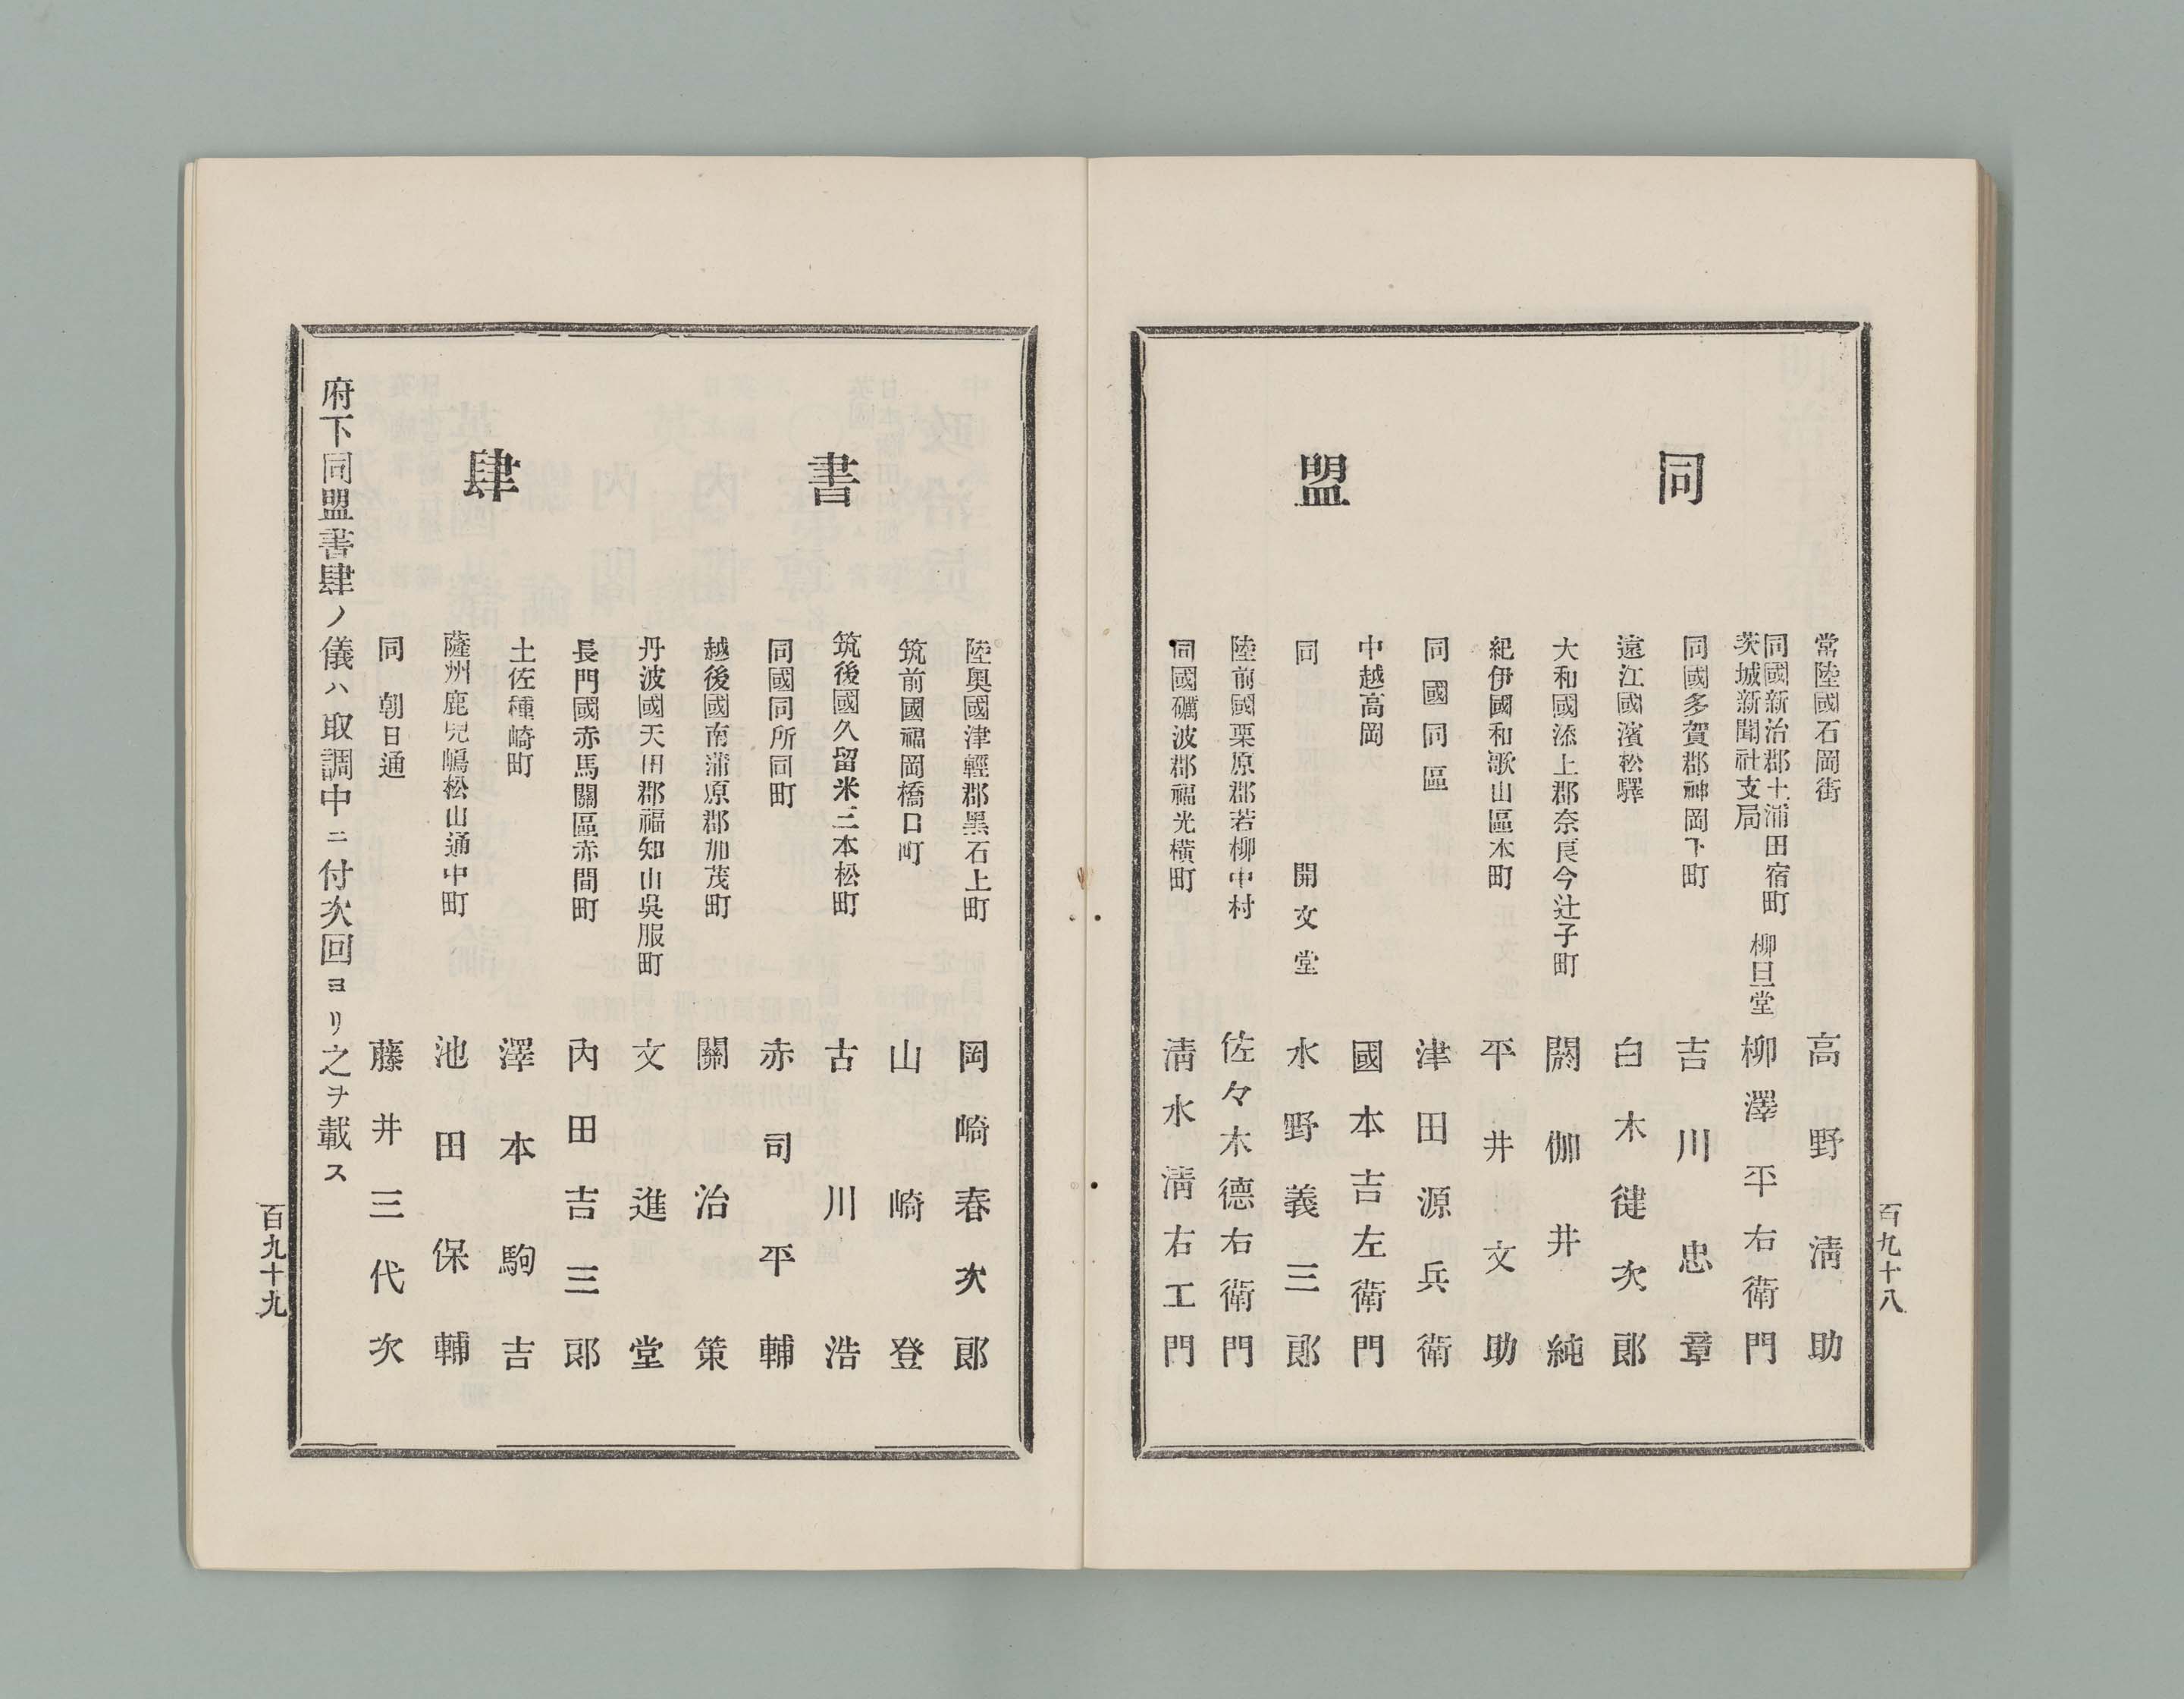 同盟
常陸國石岡街 高野淸助
同國新治郡土浦田宿町
茨城新聞社支局
柳旦堂 柳澤平右衛門
同國多賀郡神岡下町 吉川忠章
遠江國濱松驛 白木健次郎
大和國添上郡奈良今辻子町 閼伽井純
紀伊國和歌山區本町 平井文助
同國同區 津田源兵衛
中越高岡 國本吉左衛門
同 開文堂 水野義三郎
陸前國栗原郡若柳中村 佐々木德右衛門
同國礪波郡福光橫町 淸水淸右工門
百九十八
書肆
陸奧國津輕郡黑石上町 岡崎春次郎
筑前國福岡橋口町 山崎登
筑後國久留米三本松町 古川浩
同國同所同町 赤司平輔
越後國南蒲原郡加茂町 關治策
丹波國天田郡福知山吳服町 文進堂
長門國赤馬關區赤間町 內田吉三郎
土佐種崎町 澤本駒吉
薩州鹿兒嶋松山通中町 池田保輔
同 朝日通 藤井三代次
府下同盟書肆ノ儀ハ取調中ニ付次回ヨリ之ヲ載ス
百九十九